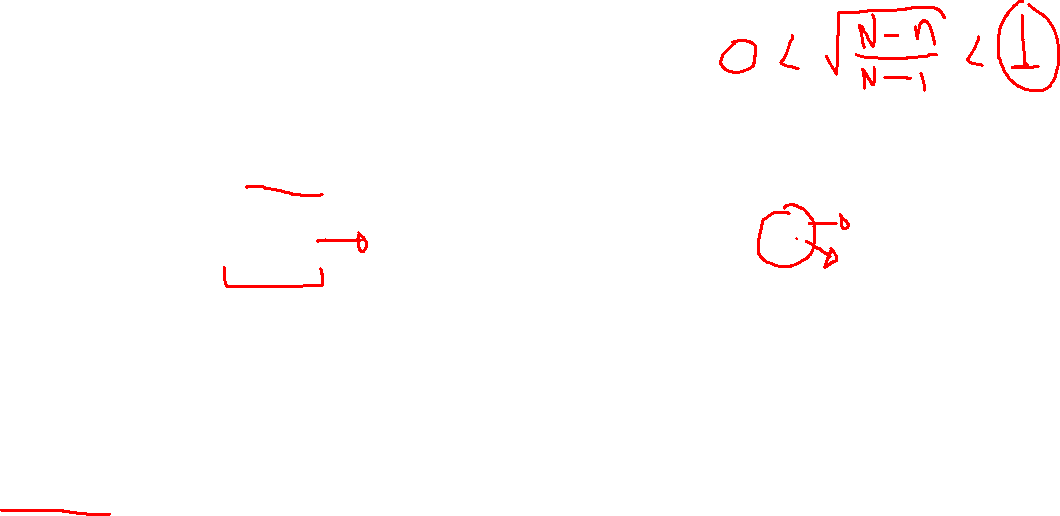 0 < √((N-n)/(N-1)) < 1